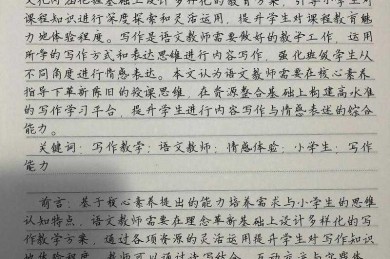 文化内涵化程基础上设计多样化的教育方案，引导小学生对
课程知识进行深度探索和灵活运用，提升学生对课程教育魅
力地体验程度。写作是语文教师需要做好的教学工作，运用
所学的写作方式和表达思维进行内容写作，强化班级学生从
不同角度进行情感表达。本文认为语文教师需要在核心素养
指导下革新陈旧的授课思维，在资源整合基础上构建高水准
的写作学习平台，提升学生进行内容写作与情感表述的综合
能力。
关键词：写作教学；语文教师；情感体验；小学生；写作
能力
前言：基于核心素养提出的能力培养需求与小学生的思维
认知特点，语文教师需要在理念革新基础上设计多样化的写
作教学方案，通过各项资源的灵活运用提升学生对写作知识
地体验程度。教师可以通过读写结合、互动交流与实践体